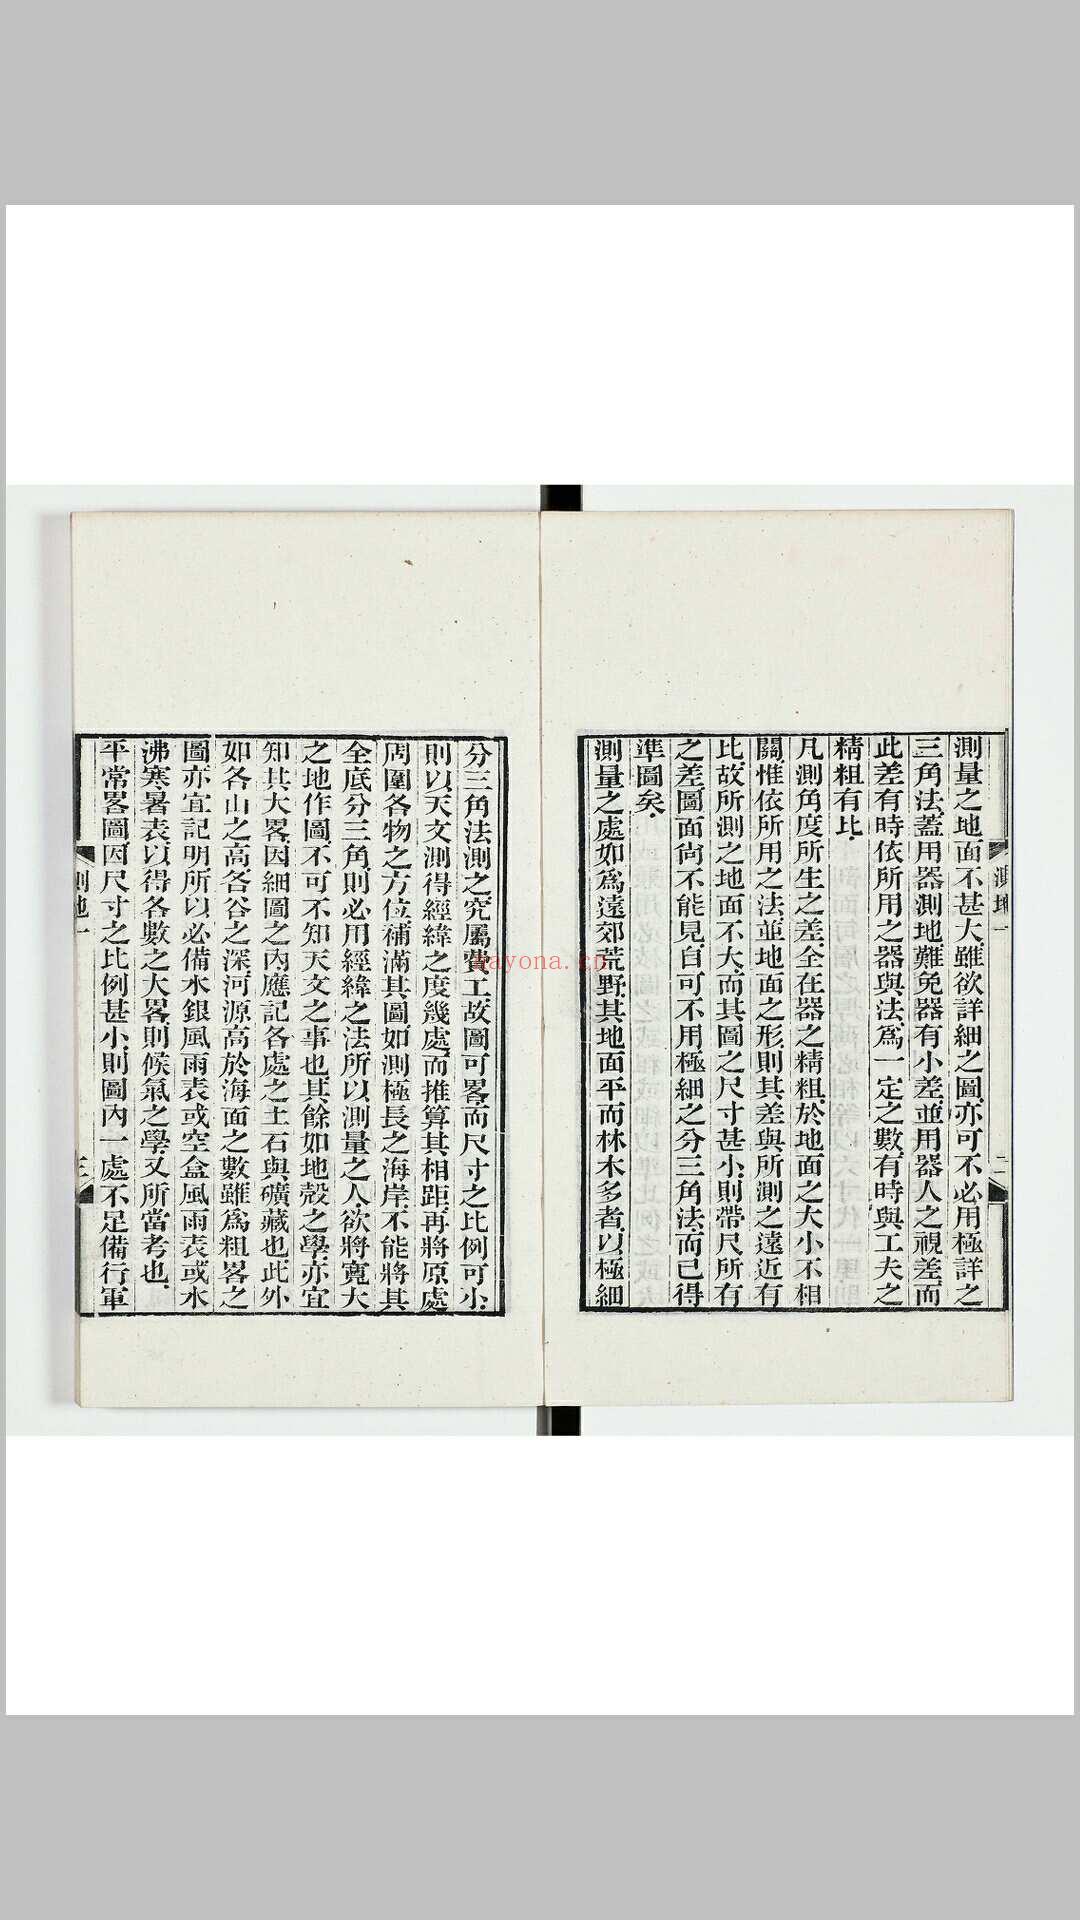 測地一
二
測量之地面不甚大、雖欲詳細之圖、亦可不必用極詳之
三角法、蓋用器測地、難免器有小差、並用器人之視差、而
此差有時依所用之器與法、爲一定之數、有時與工夫之
精粗有比、
凡測角度所生之差、全在器之精粗、於地面之大小不相
關、惟依所用之法並地面之形、則其差與所測之遠近有
比、故所測之地面不大、而其圖之尺寸甚小、則帶尺所有
之差、圖面尙不能見、自可不用極細之分三角法、而已得
準圖矣、
測量之處、如爲遠郊荒野、其地面平而林木多者、以極細
分三角法測之、究屬費工、故圖可畧、而尺寸之比例可小、
則以天文測得經緯之度幾處、而推算其相距、再將原處
周圍各物之方位、補滿其圖、如測極長之海岸、不能將其
全底分三角、則必用經緯之法、所以測量之人、欲將寬大
之地作圖、不可不知天文之事也、其餘如地殼之學、亦宜
知其大畧、因細圖之內、應記各處之土石與礦藏也、此外
如各山之高、各谷之深、河源高於海面之數、雖爲粗畧之
圖、亦宜記明、所以必備水銀風雨表、或空盒風雨表、或水
沸寒暑表、以得各數之大畧、則候氣之學、又所當考也、
平常畧圖、因尺寸之比例甚小、則圖內一處不足備行軍
測地一
三
nayona.cn